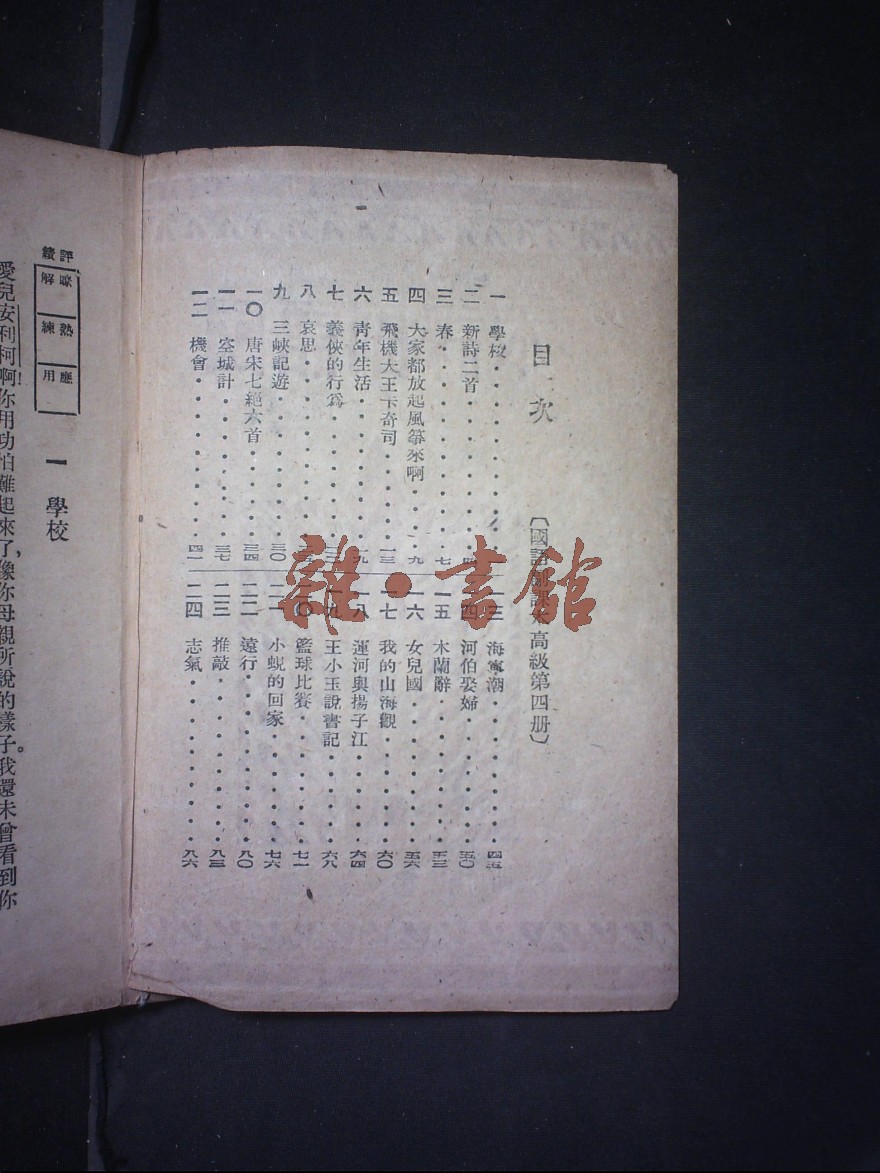 目次
〔國語
高級第四册〕
一 學校
二 新詩二首
三 春 七
四 大家都放起風箏來啊 九
五 飛機大王卡奇司 一三
六 青年生活
七 義俠的行爲
八 哀思
九 三峽記遊 三〇
一〇 唐宋七絕六首 三四
一一 空城計 三七
一二 機會 四一
一三 海寧潮 四五
一四 河伯娶婦 五〇
一五 木蘭辭 五三
一六 女兒國 五六
一七 我的山海觀 六〇
一八 運河與揚子江 六四
一九 王小玉說書記 六八
二〇 籃球比賽 七一
二一 小蜺的回家 七六
二二 遠行 八〇
二三 推敲 八三
二四 志氣 八六
雜·書館
評績
瞭解
熟練
應用
一 學校
愛兒安利柯啊!你用功怕難起來了,像你母親所說的樣子。我還未曾看到你